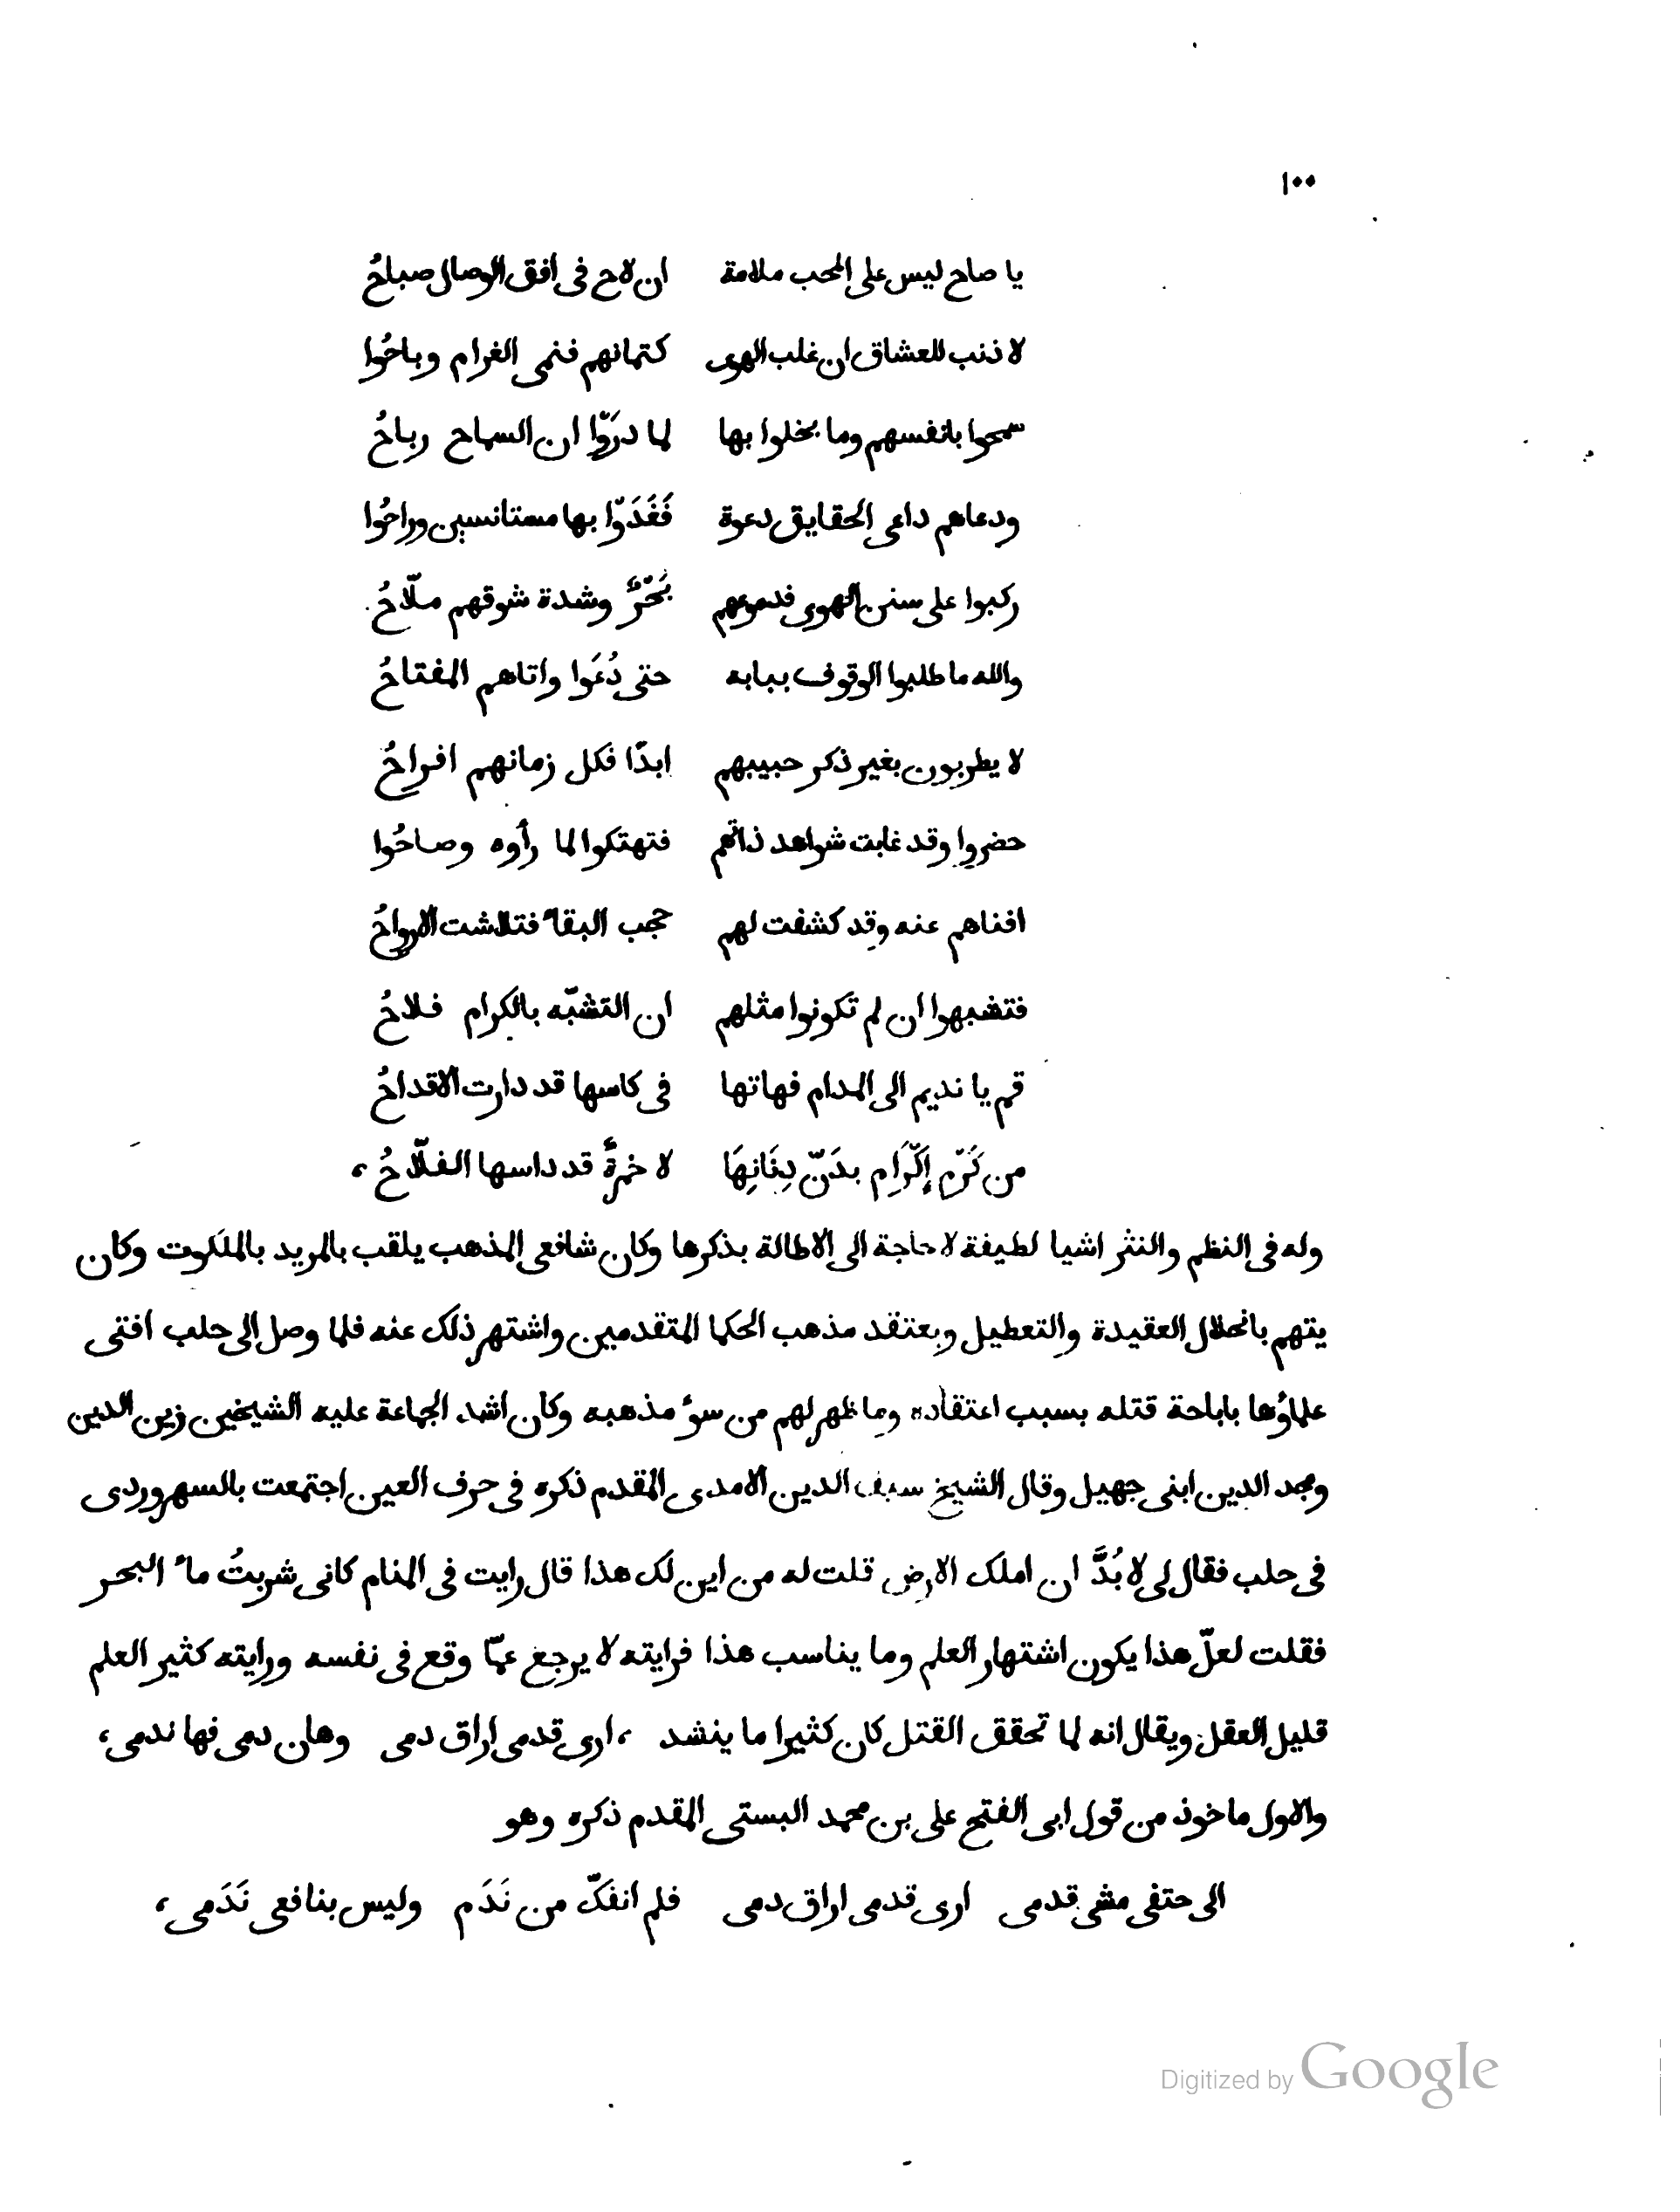 ١٠٠
يا صاح ليس على المحب ملامة ان لاح فى افق الوصال صباحُ
لا ذنب للعشاق ان غلب الهوى كتمانهم فنمى الغرام وباحُوا
سمحوا بانفسهم وما بخلوا بها لما درَوّا ان السماح رباحُ
ودعاهم داعى الحقايق دعوة فَغَدَوّا بها مستانسين وراحُوا
ركبوا على سنن الهوى فدموعهم بَحّرٌ وشدة شوقهم ملّاحُ
والله ما طلبوا الوقوف ببابه حتى دُعَوا واتاهم المفتاحُ
لا يطربون بغير ذكر حبيبهم ابدًا فكل زمانهم افراحُ
حضروا وقد غابت شواهد ذاتهم فتهتكوا لما رأوه وصاحُوا
افناهم عنه وقد كشفت لهم حجب البقاء فتلاشت الارواحُ
فتشبهوا ان لم تكونوا مثلهم ان التشبّه بالكرام فلاحُ
قم يا نديم الى المدام فهاتها فى كاسها قد دارت الاقداحُ
من كَرّم إكّرَام بدَنّ دِنَانِهَا لا خمرةٌ قد داسها الفلّاحُ ،
وله فى النظم والنثر اشيا لطيفة لا حاجة الى الاطالة بذكرها وكان شافعى المذهب يلقب بالمريد بالملكوت وكان
يتهم بانحلال العقيدة والتعطيل ويعتقد مذهب الحكما المتقدمين واشتهر ذلك عنه فلما وصل الى حلب افتى
علماؤها باباحة قتله بسبب اعتقاده وما ظهر لهم من سوء مذهبه وكان اشد الجماعة عليه الشيخين زين الدين
ومجد الدين ابنى جهيل وقال الشيخ سيف الدين الامدى المقدم ذكره فى حرف العين اجتمعت بالسهروردى
فى حلب فقال لى لا بُدَّ ان املك الارض قلت له من اين لك هذا قال رايت فى المنام كانى شربتُ ماء البحر
فقلت لعلّ هذا يكون اشتهار العلم وما يناسب هذا فرايته لا يرجع عمّا وقع فى نفسه ورايته كثير العلم
قليل العقل ويقال انه لما تحقق القتل كان كثيرا ما ينشد ، ارى قدمى اراق دمى وهان دمى فها ندمى ،
والاول ماخوذ من قول ابى الفتح على بن محمد البستى المقدم ذكره وهو
الى حتفى مشى قدمى ارى قدمى اراق دمى فلم انفكّ من نَدَم وليس بنافعى نَدَمى ،
Digitized by Google